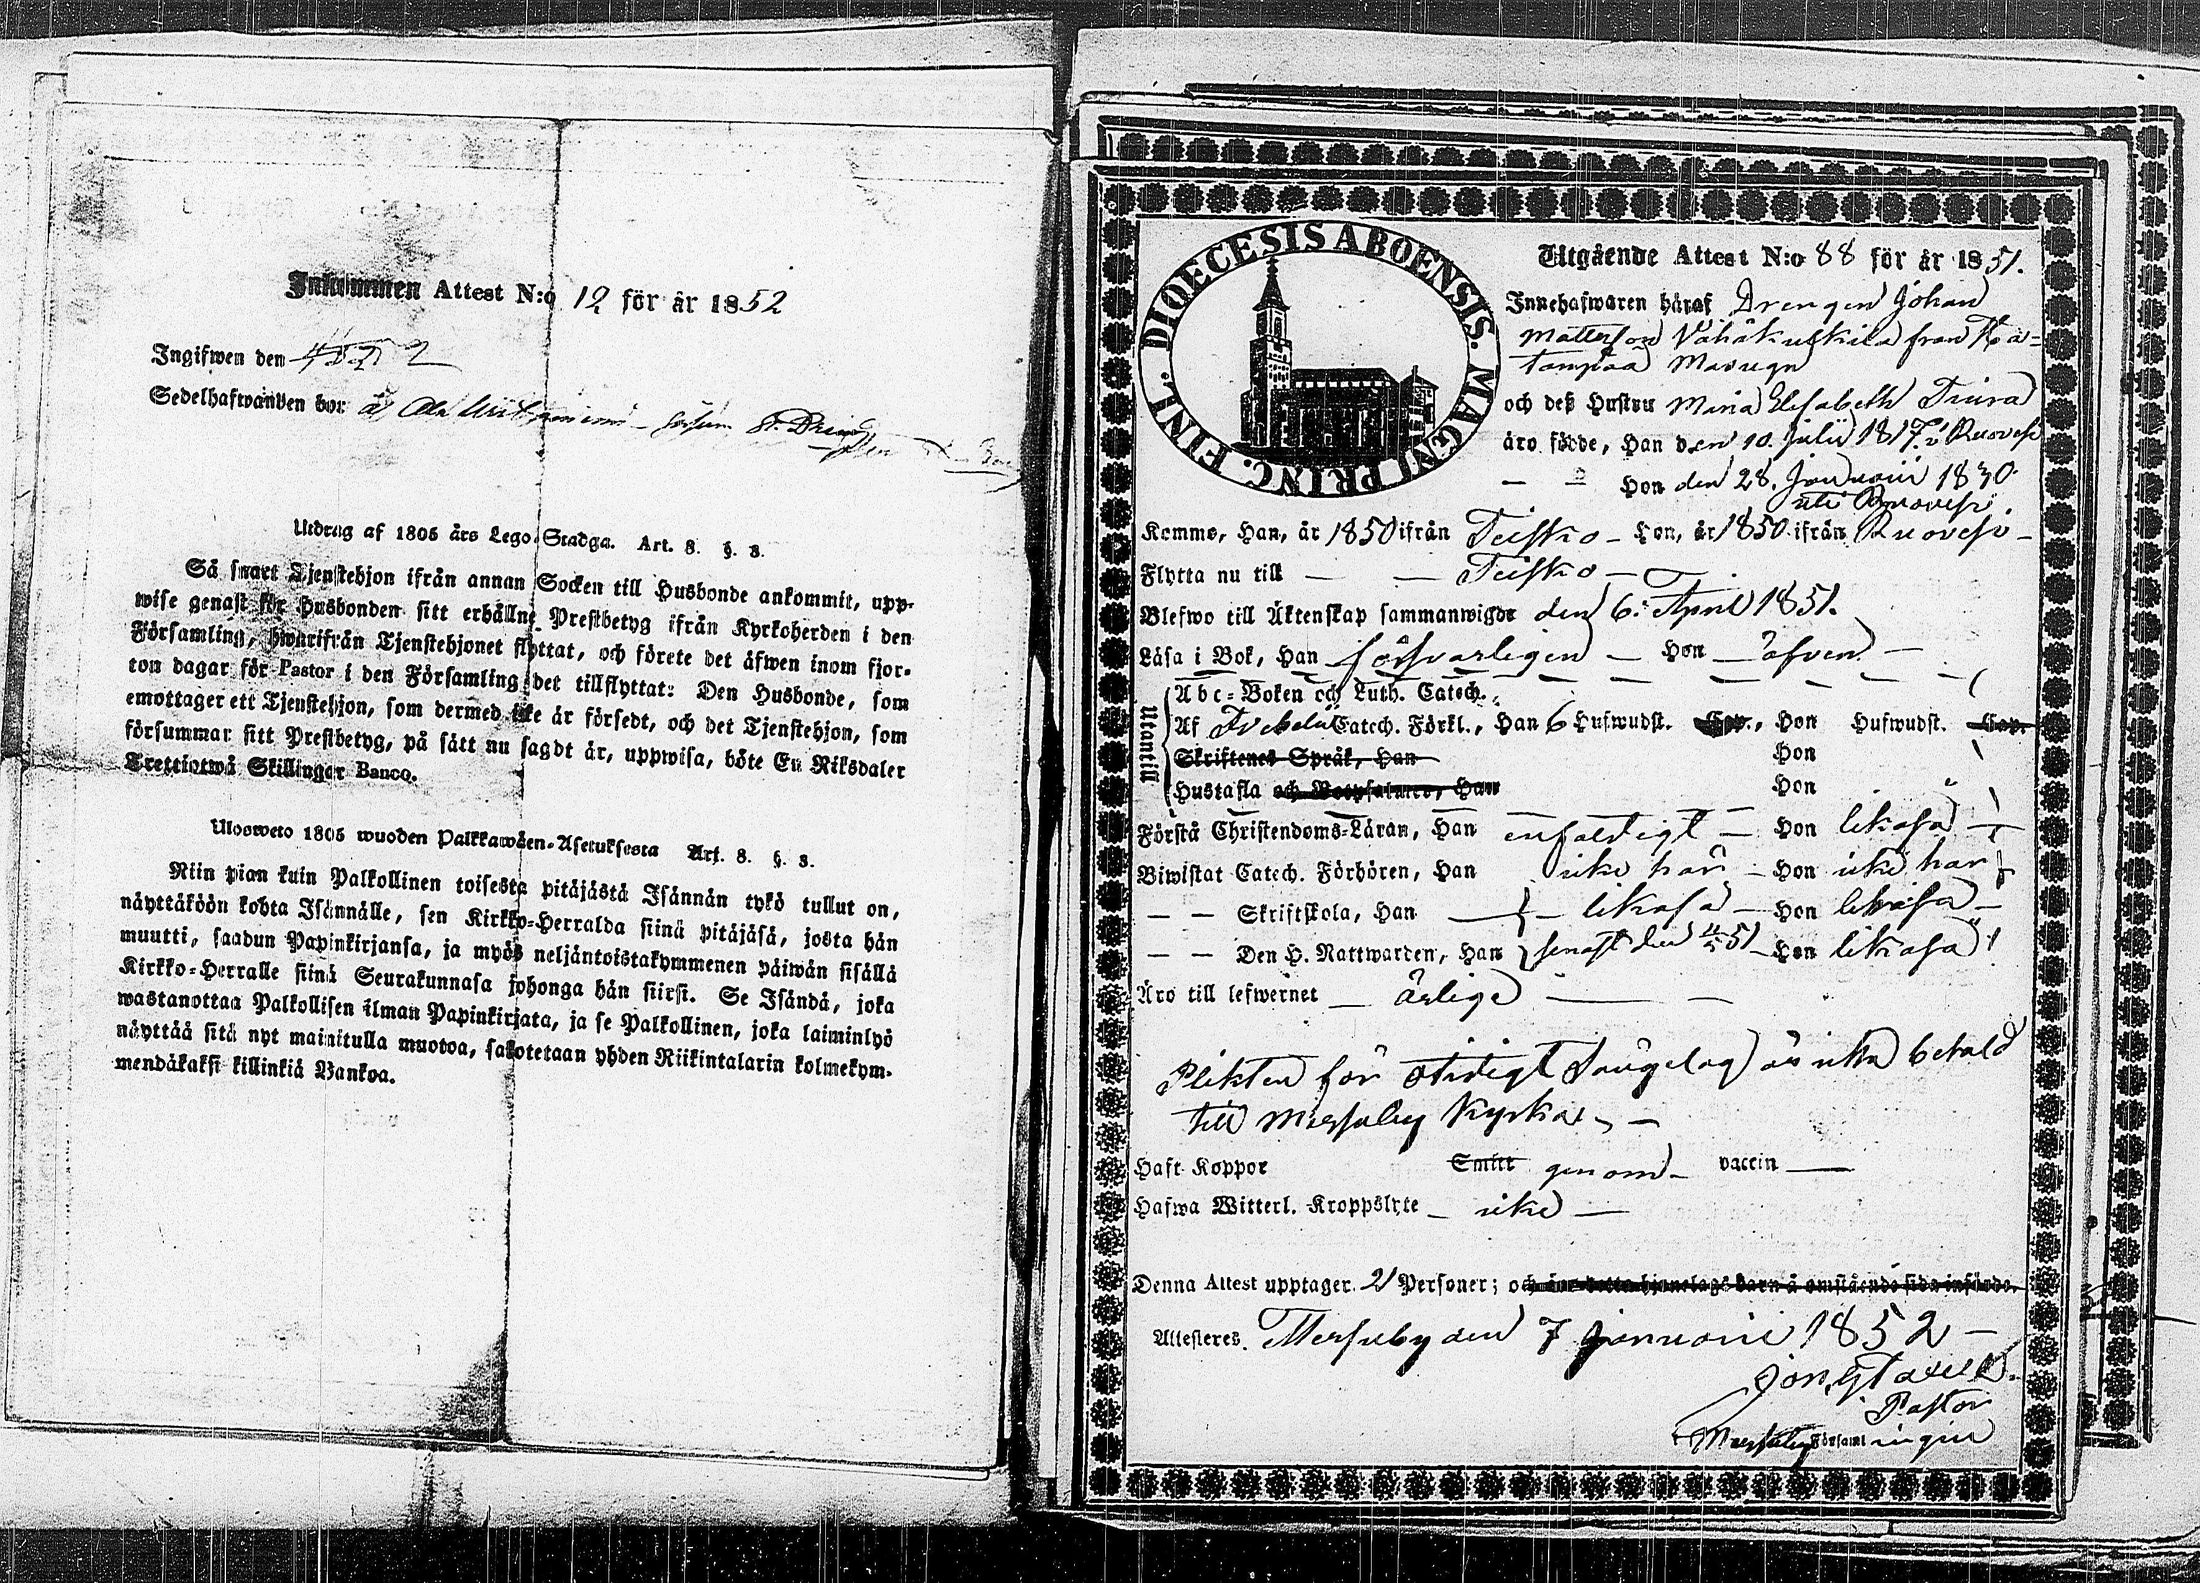 Inkommen Attest N:o 12 för år 1852
Ingifwen den
Sedelhafwanden bor å
Utdrag af 1805 års Lego-Stadga. Art. 8. §. 3.
Så snart Tjenstehjon ifrån annan Socken till Husbonde ankommit, upp-
wise genast för Husbonden sitt erhållne Prestbetyg ifrån Kyrkoherden i den
Församling, hwarifrån Tjenstehjonet flyttat, och förete det äfwen inom fjor-
ton dagar för Pastor i den Församling det tillflyttat: Den Husbonde, som
emottager ett Tjenstehjon, som dermed icke är försedt, och det Tjenstehjon, som
försummar sitt Prestbetyg, på sätt nu sagdt är, uppwisa, böte En Riksdaler
Trettiotwå Skillingar Banco.
Ulosweto 1805 wuoden Palkkawäen-Asetuksesta Art. 8. §. 3.
Niin pian kuin Palkollinen toisesta pitäjästä Isännän tykö tullut on,
näyttäköön kohta Isännälle, sen Kirkko-Herralda siinä pitäjäsä, josta hän
muutti, saadun Papinkirjansa, ja myös neljäntoistakymmenen päiwän sisällä
Kirkko-Herralle siinä Seurakunnasa johonga hän siirsi. Se Isändä, joka
wastanottaa Palkollisen ilman Papinkirjata, ja se Palkollinen, joka laiminlyö
näyttää sitä nyt mainitulla muotoa, sakotetaan yhden Riikintalarin kolmekym-
mendäkaksi killinkiä Bankoa.
DIOECESIS ABOENSIS. MAGNI PRINC. FINL.
Utgående Attest N:o 88 för år 1851.
Innehafwaren häraf Drengen Johan
Mattsson Vähäkuskila från
Masugn
och deß Hustru Maria Elisabeth
äro födde, Han den 10. Julii 1817. i Ruovesi
Hon den 28. Januarii 1830
uti Ruovesi
Kommo, Han, år 1850 ifrån Teisko – Hon, år 1850 ifrån Ruovesi –
Flytta nu till — — Teisko –
Blefwo till Äktenskap sammanwigde den 6. April 1851.
Läsa i Bok, Han försvarligen – Hon – äfven –
Utantill
Abc-Boken och Luth. Catech.
Af Svebelii Catech. Förkl., Han 6 Hufwudst. Cap., Hon Hufwudst. Cap.
Skriftenes Språk, Han Hon
Hustafla och Botpsalmer, Han Hon
Förstå Christendoms-Läran, Han enfaldigt – Hon likaså –
Biwistat Catech. Förhören, Han icke har – Hon icke har
— — Skriftskola, Han — likaså – Hon likaså –
— — Den H. Nattwarden, Han senast den 51 – Hon likaså
Äro till lefwernet – ärlige — —
Plikten för otidigt sängelag är icke betald
till Messuby Kyrka. –
Haft Koppor Smitt genom – vaccin —
Hafwa Witterl. Kroppslyte – icke —
Denna Attest upptager 2 Personer; och äro detta hjonelags barn å omstående sida införde.
Attesteras. Messuby den 7 Januarii 1852 –
Pastor
i Messuby Församlingen